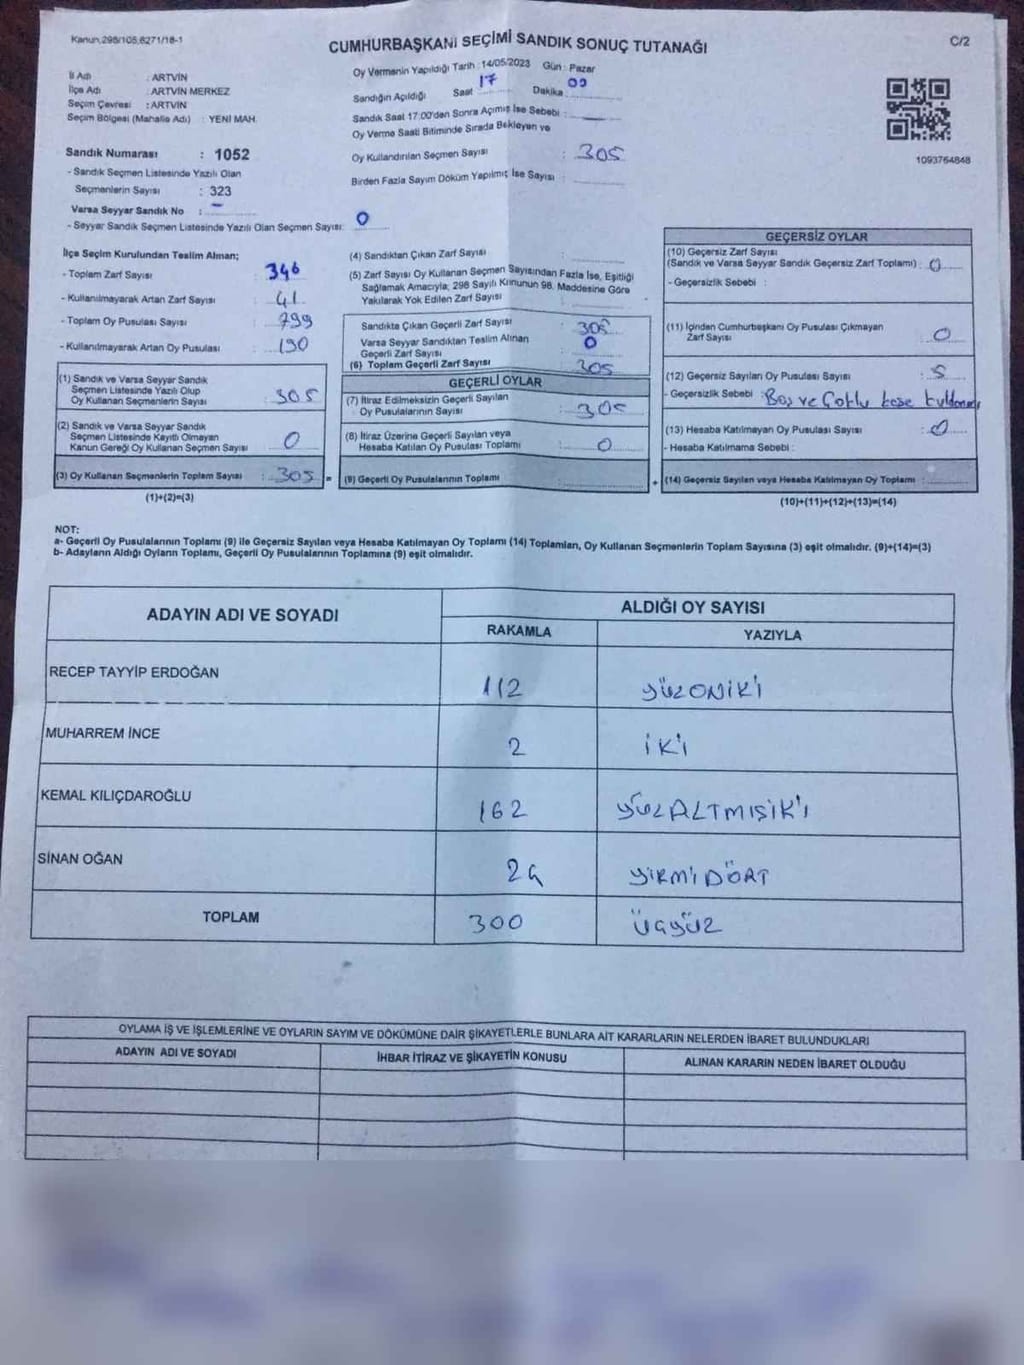 Kanun,298/105,6271/18-1
CUMHURBAŞKANI SEÇİMİ SANDIK SONUÇ TUTANAĞI
C/2
İl Adı : ARTVİN
İlçe Adı : ARTVİN MERKEZ
Seçim Çevresi : ARTVİN
Seçim Bölgesi (Mahalle Adı) : YENİ MAH.
Sandık Numarası : 1052
- Sandık Seçmen Listesinde Yazılı Olan
Seçmenlerin Sayısı : 323
Varsa Seyyar Sandık No : -
- Seyyar Sandık Seçmen Listesinde Yazılı Olan Seçmen Sayısı: 0
Oy Vermenin Yapıldığı Tarih : 14/05/2023 Gün : Pazar
Sandığın Açıldığı Saat 17 Dakika 00
Sandık Saat 17:00'den Sonra Açımış İse Sebebi :
Oy Verme Saati Bitiminde Sırada Bekleyen ve
Oy Kullandırılan Seçmen Sayısı : 305
Birden Fazla Sayım Döküm Yapılmış İse Sayısı :
1093764848
İlçe Seçim Kurulundan Teslim Alınan;
- Toplam Zarf Sayısı : 346
- Kullanılmayarak Artan Zarf Sayısı : 41
- Toplam Oy Pusulası Sayısı : 799
- Kullanılmayarak Artan Oy Pusulası : 190
(1) Sandık ve Varsa Seyyar Sandık
Seçmen Listesinde Yazılı Olup
Oy Kullanan Seçmenlerin Sayısı : 305
(2) Sandık ve Varsa Seyyar Sandık
Seçmen Listesinde Kayıtlı Olmayan
Kanun Gereği Oy Kullanan Seçmen Sayısı : 0
(3) Oy Kullanan Seçmenlerin Toplam Sayısı : 305 =
(1)+(2)=(3)
(4) Sandıktan Çıkan Zarf Sayısı :
(5) Zarf Sayısı Oy Kullanan Seçmen Sayısından Fazla İse, Eşitliği
Sağlamak Amacıyla; 298 Sayılı Kanunun 98. Maddesine Göre
Yakılarak Yok Edilen Zarf Sayısı :
Sandıkta Çıkan Geçerli Zarf Sayısı : 305
Varsa Seyyar Sandıktan Teslim Alınan
Geçerli Zarf Sayısı : 0
(6) Toplam Geçerli Zarf Sayısı : 305
GEÇERLİ OYLAR
(7) İtiraz Edilmeksizin Geçerli Sayılan
Oy Pusulalarının Sayısı : 305
(8) İtiraz Üzerine Geçerli Sayılan veya
Hesaba Katılan Oy Pusulası Toplamı : 0
(9) Geçerli Oy Pusulalarının Toplamı : +
GEÇERSİZ OYLAR
(10) Geçersiz Zarf Sayısı
(Sandık ve Varsa Seyyar Sandık Geçersiz Zarf Toplamı) : 0
- Geçersizlik Sebebi :
(11) İçinden Cumhurbaşkanı Oy Pusulası Çıkmayan
Zarf Sayısı : 0
(12) Geçersiz Sayılan Oy Pusulası Sayısı : 5
- Geçersizlik Sebebi : Boş ve Çoklu
(13) Hesaba Katılmayan Oy Pusulası Sayısı : 0
- Hesaba Katılmama Sebebi :
(14) Geçersiz Sayılan veya Hesaba Katılmayan Oy Toplamı :
(10)+(11)+(12)+(13)=(14)
NOT:
a- Geçerli Oy Pusulalarının Toplamı (9) ile Geçersiz Sayılan veya Hesaba Katılmayan Oy Toplamı (14) Toplamları, Oy Kullanan Seçmenlerin Toplam Sayısına (3) eşit olmalıdır. (9)+(14)=(3)
b- Adayların Aldığı Oyların Toplamı, Geçerli Oy Pusulalarının Toplamına (9) eşit olmalıdır.
ADAYIN ADI VE SOYADI
ALDIĞI OY SAYISI
RAKAMLA YAZIYLA
RECEP TAYYİP ERDOĞAN 112 YÜZONİKİ
MUHARREM İNCE 2 İKİ
KEMAL KILIÇDAROĞLU 162 YÜZALTMIŞİKİ
SİNAN OĞAN 24 YİRMİDÖRT
TOPLAM 300 ÜÇYÜZ
OYLAMA İŞ VE İŞLEMLERİNE VE OYLARIN SAYIM VE DÖKÜMÜNE DAİR ŞİKAYETLERLE BUNLARA AİT KARARLARIN NELERDEN İBARET BULUNDUKLARI
ADAYIN ADI VE SOYADI İHBAR İTİRAZ VE ŞİKAYETİN KONUSU ALINAN KARARIN NEDEN İBARET OLDUĞU